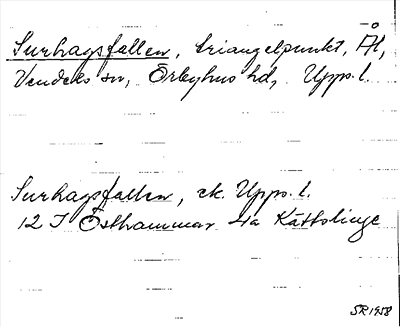 Surhagsfallen, triangelpunkt,
Vendels sn, Örbyhus hd, Upps. l.
Surhagsfallen, ek. Upps. l.
12 I Östhammar 4a Kättslinge
SR 1958